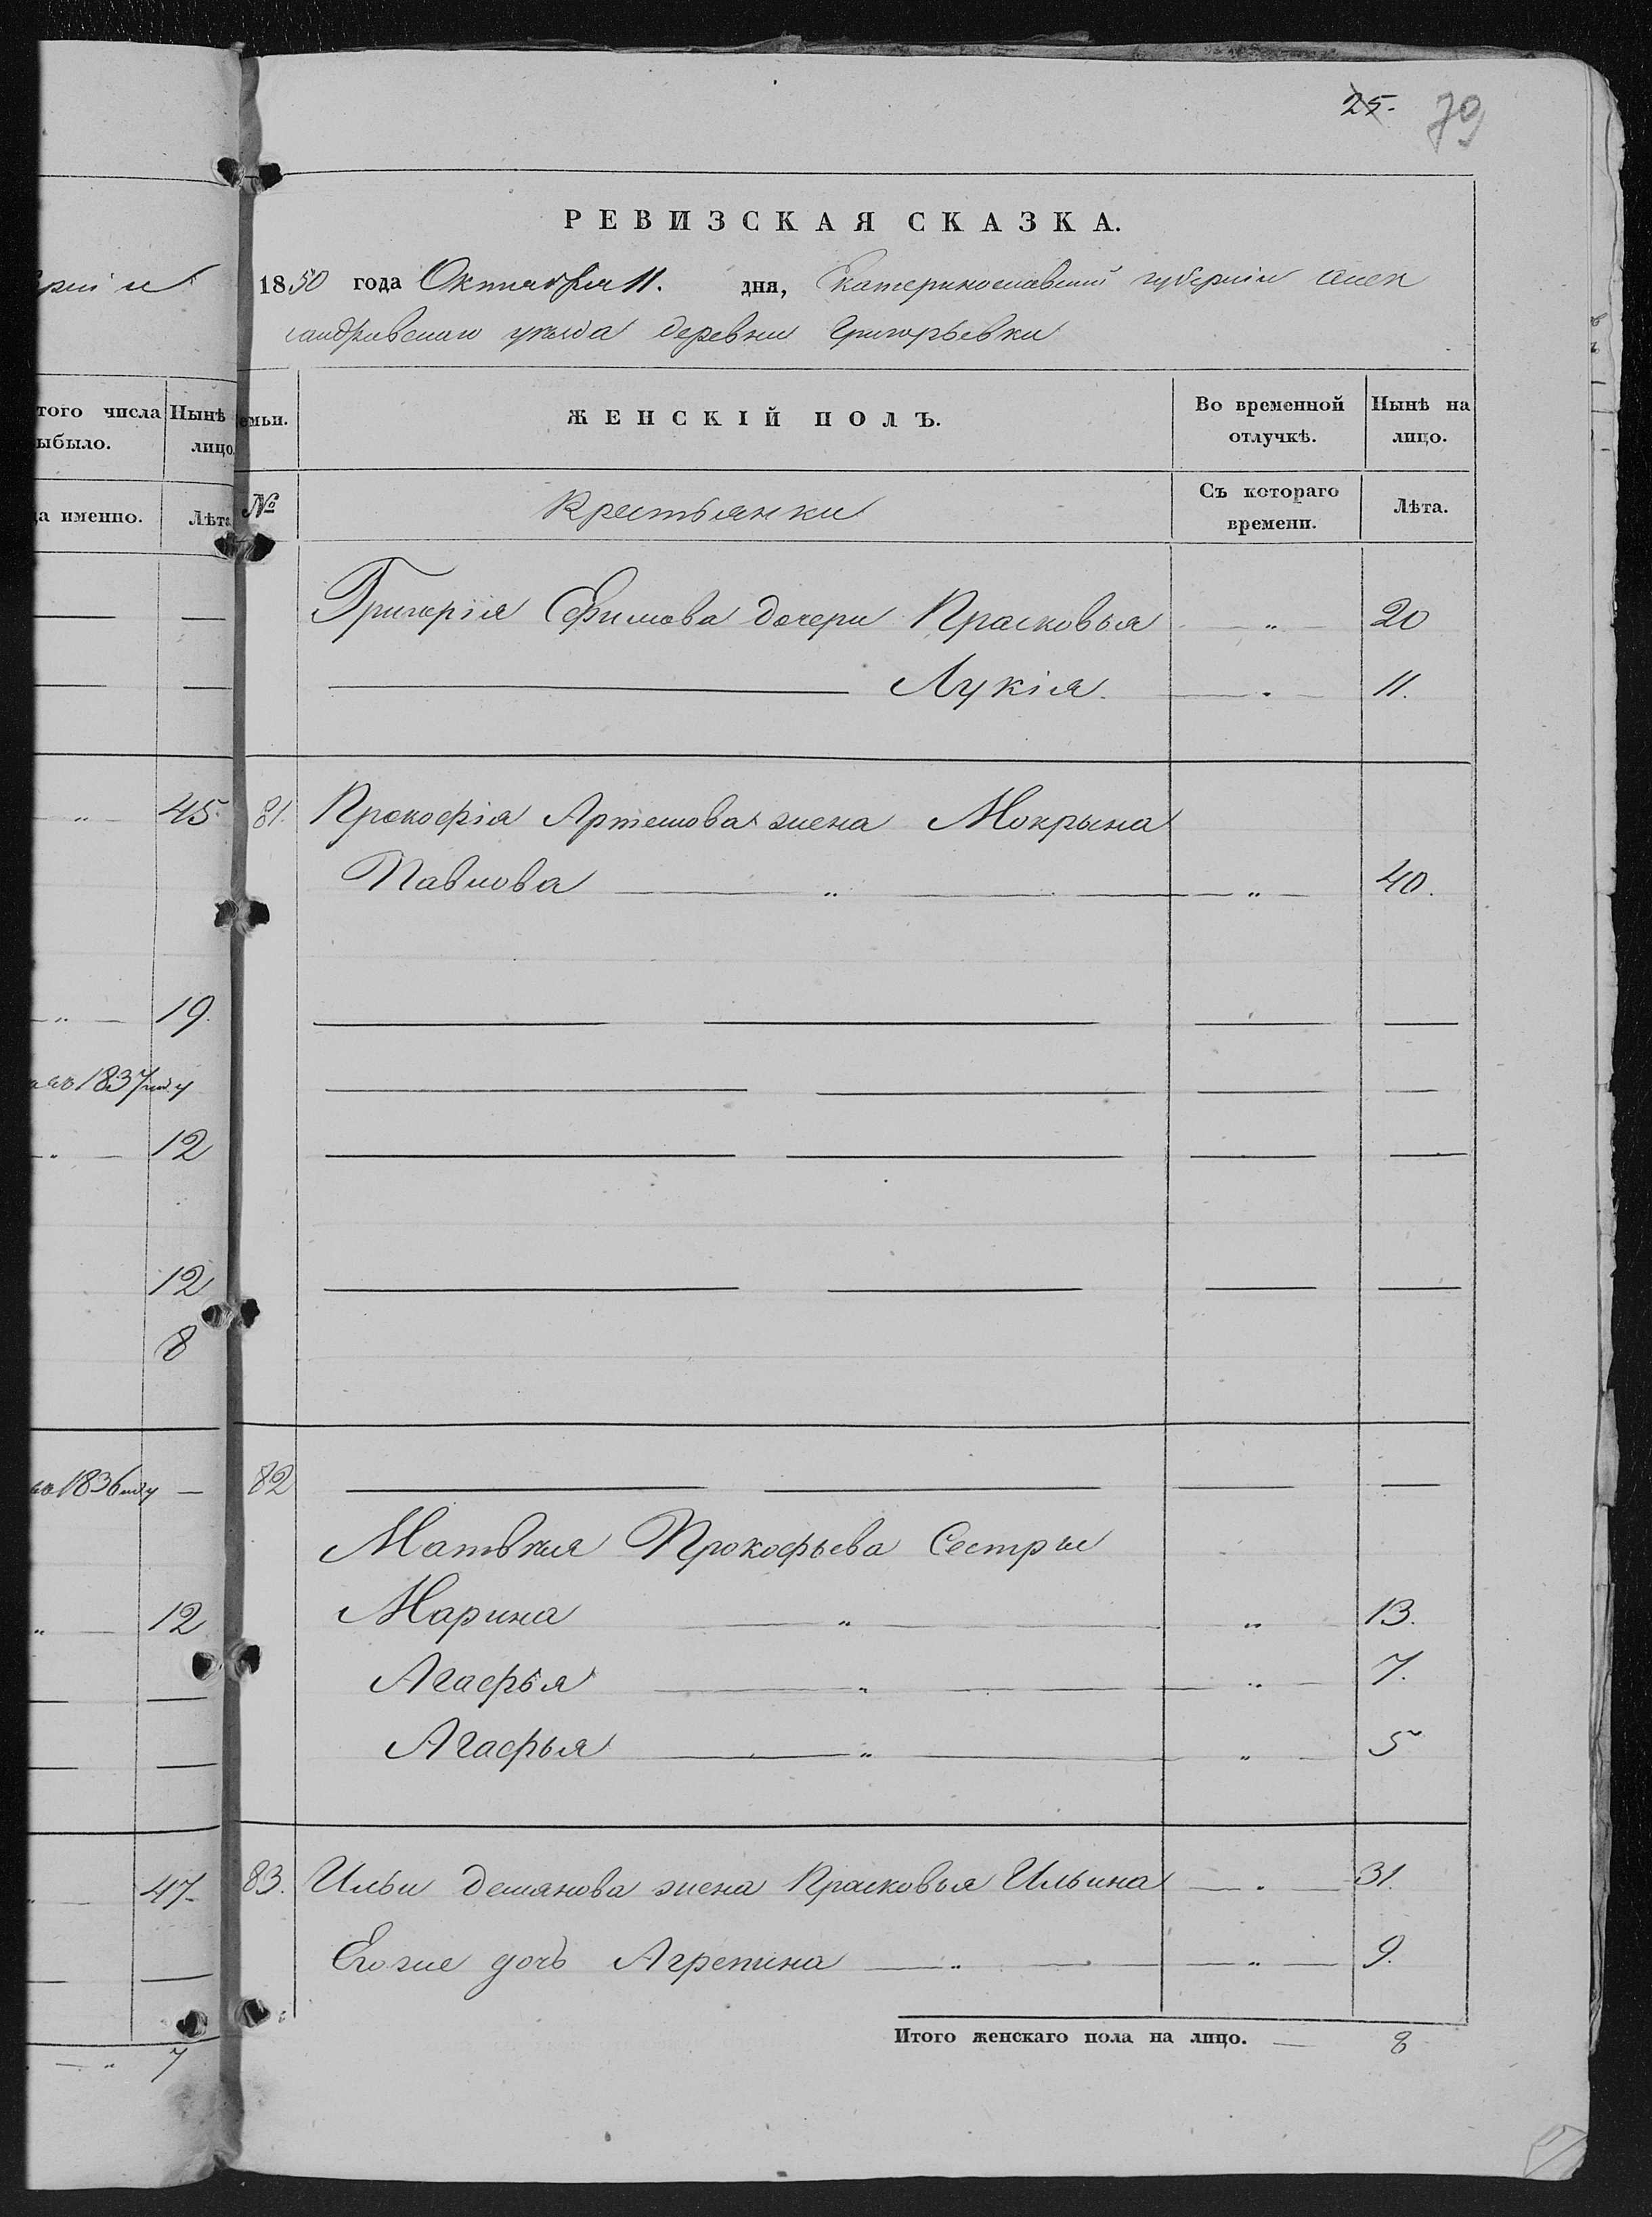 25. 79
РЕВИЗСКАЯ СКАЗКА.
1850 года Октября 11. дня, Екатеринославской губернии Алек
сандровскаго уезда деревни Григорьевки
того числа
ыбыло.
Нынѣ
лицо
емьи.
ЖЕНСКІЙ ПОЛЪ.
Во временной
отлучкѣ.
Нынѣ на
лицо.
да именно.
Лѣта
№
Крестьянки
Съ котораго
времени.
Лѣта.
Григорія Ефимова дочери Прасковья — „ — 20
Лукія. — „ — 11.
— „ — 45. 81. Прокофія Артемова жена Мокрына
Павлова — „ — — „ — 40.
— „ — 19.
1837 году
— „ — 12
12
8
1836 году — 82
Матвѣя Прокофьева Сестры
„ — 12 Марина — „ — „ 13.
Агафья — „ — „ — 7.
Агафья — „ — „ — 5
— 47. 83. Ильи Демянова жена Прасковья Ильина — „ — 31.
Егоже дочь Агрепина — „ — — „ — 9.
Итого женскаго пола на лицо. — 8
— „ 7